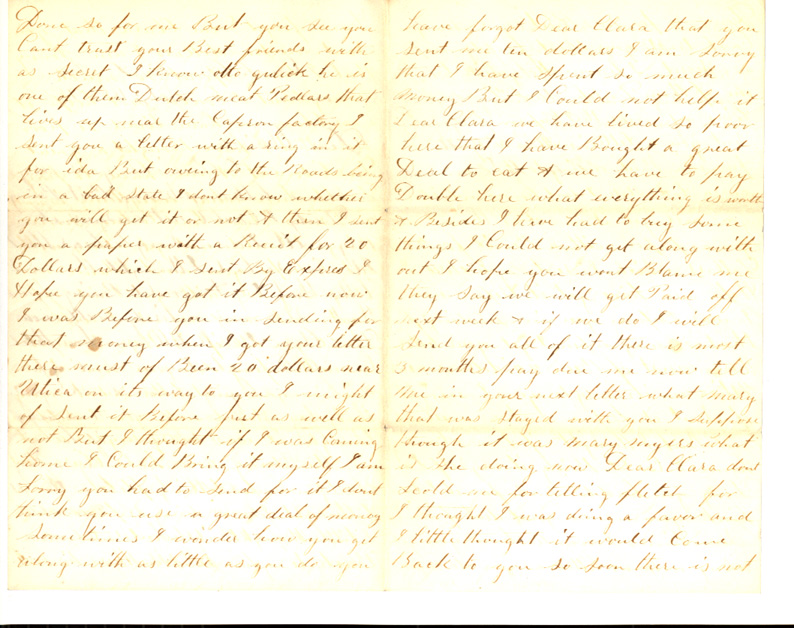 Done so for me But you see you
Cant trust your Best friends with
as secret I know otto gulick he is
one of them Dutch meat Pedlars that
lives up near the Capron factory I
sent you a letter with a ring in it
for ida But owing to the Roads being
in a bad state I dont know whether
you will get it or not & then I sent
you a paper with a Receit for 20
Dollars which I sent By Express I
Hope you have got it Before now
I was Before you in sending for
that money when I got your letter
there must of Been 20 dollars near
Utica on its way to you I might
of sent it Before just as well as
not But I thought if I was Coming
home I Could Bring it myself I am
Sorry you had to send for it I dont
think you use a great deal of money
sometimes I wonder how you get
along with as little as you do you
have forgot Dear Clara that you
sent me ten dollars I am Sorry
that I have spent so much
money But I Could not help it
Dear Clara we have lived so poor
here that I have Bought a great
Deal to eat & we have to pay
Double here what everything is worth
& Besides I have had to buy some
things I Could not get along with
out I hope you wont Blame me
they say we will get Paid off
next week & if we do I will
send you all of it there is most
months pay due me now tell
me in your next letter what mary
that was stayed with you I suppose
though it was mary myers what
is she doing now Dear Clara dont
scold me for telling fletch for
I thought I was doing a favor and
I little thought it would Come
Back to you so soon there is not